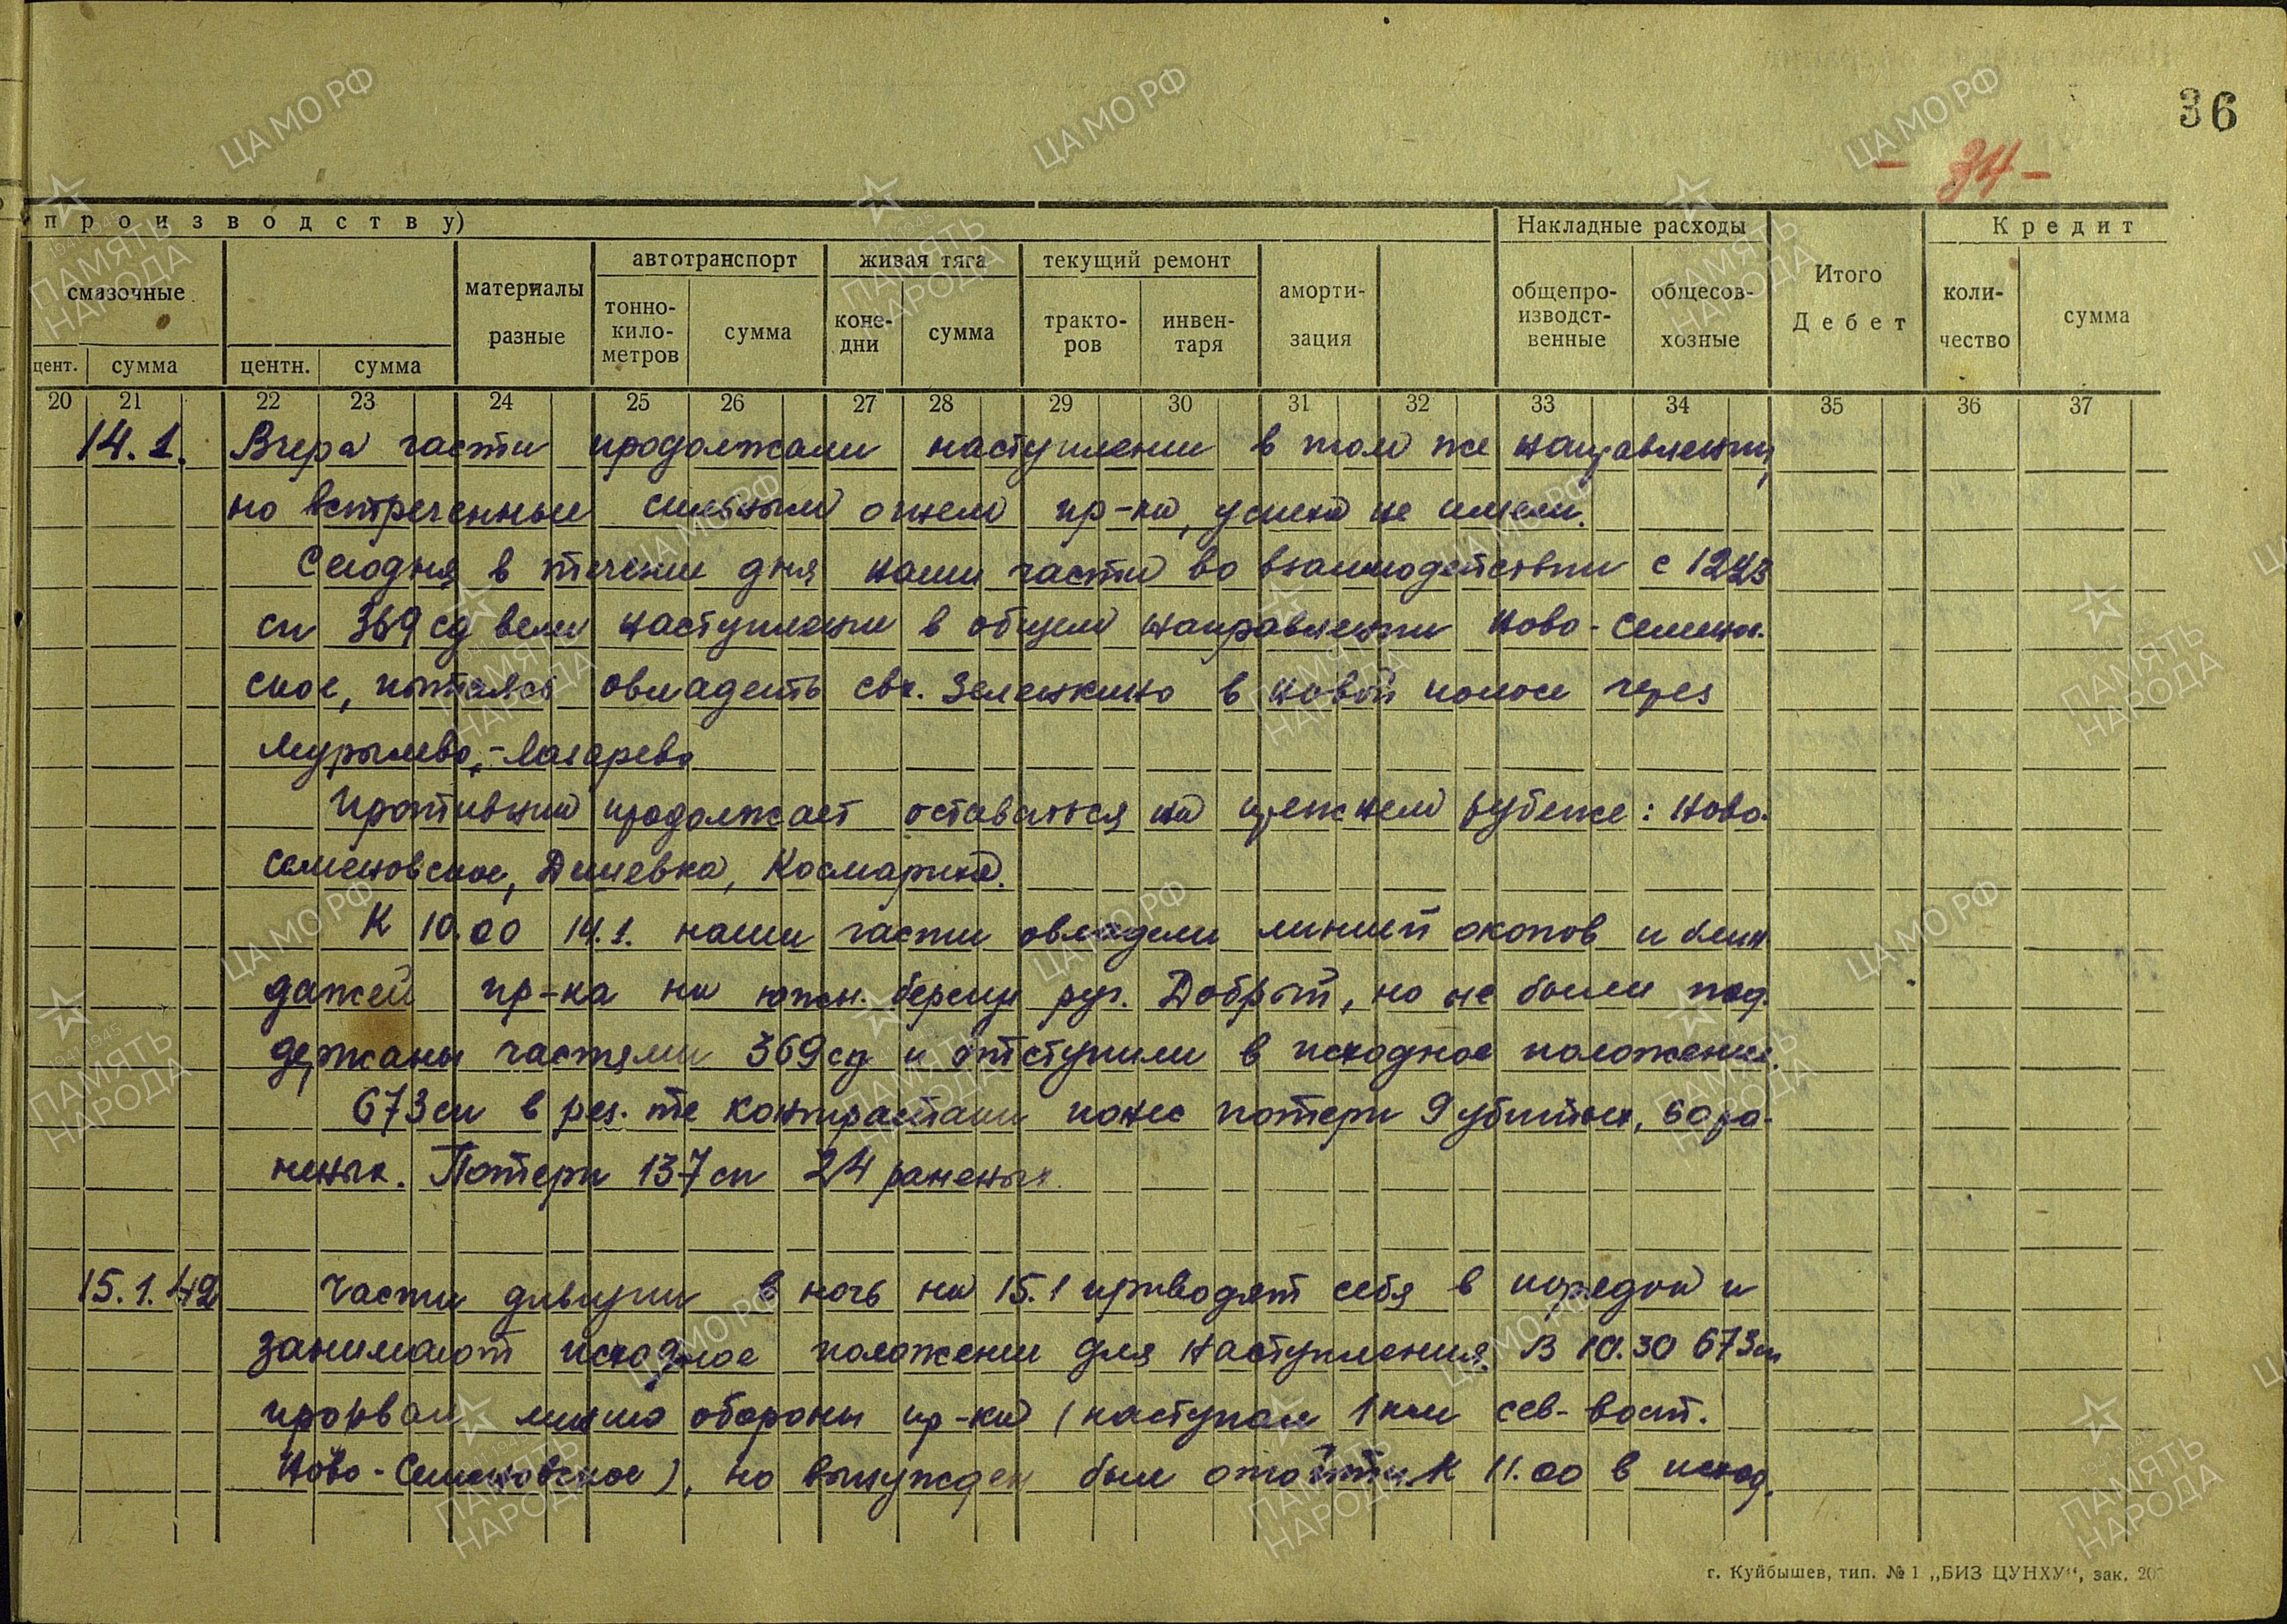 36
- 34 -
производству)
Накладные расходы
Кредит
смазочные
материалы разные
автотранспорт
живая тяга
текущий ремонт
аморти-
зация
общепро-
изводст-
венные
общесов-
хозные
Итого
Дебет
коли-
чество
сумма
тонно-
кило-
метров
сумма
коне-
дни
сумма
тракто-
ров
инвен-
таря
цент. сумма центн. сумма
20 21 22 23 24 25 26 27 28 29 30 31 32 33 34 35 36 37
14.1. Вчера части продолжали наступление в том же направлении,
но встреченные сильным огнем пр-ка, успеха не имели.
Сегодня в течении дня наши части во взаимодействии с 1223
сп 369 сд вели наступление в общем направлении Ново-Семенов.
ское, пытаясь овладеть свх. Зеленкино в новой полосе через
Мурылево,-Лазарево
Противник продолжает оставаться на прежнем рубеже: Ново-
семеновское, Дешевка, Космариха.
К 10.00 14.1. наши части овладели линией окопов и блин
дажей пр-ка на южн. берегу руч. Добрый, но не были под.
держаны частями 369 сд и отступили в исходное положение.
673 сп в рез. те контратаки понес потери 9 убитых, 60 ра-
неных. Потери 137 сп 24 раненых.
15.1.42 Части дивизии в ночь на 15.1 приводят себя в порядок и
занимают исходное положение для наступления. В 10.30 673 сп
прорвал линию обороны пр-ка (наступая 1 км сев-вост.
Ново-Семеновское), но вынужден был отойти к 11.00 в исход.
г. Куйбышев, тип. № 1 „БИЗ ЦУНХУ“, зак. 20
ЦАМО РФ
ПАМЯТЬ НАРОДА